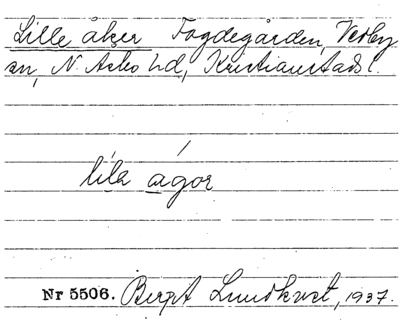 Lille åker Fogdegården, Verby
sn, N. Asbo hd, Kristianstads l.
lila agor
Nr 5506. Birgit Lundkvist, 1937.